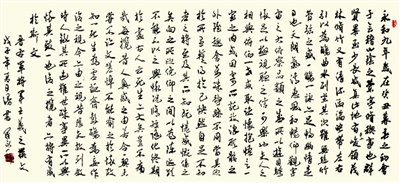 永和九年歲在癸丑暮春之初會
于會稽山陰之蘭亭修禊事也群
賢畢至少長咸集此地有崇山峻領茂
林修竹又有清流激湍映帶左右
引以為流觴曲水列坐其次雖無絲竹管
弦之盛一觴一詠亦足以暢敘幽情是
日也天朗氣清惠風和暢仰觀宇
宙之大俯察品類之盛所以遊目騁
懷足以極視聽之娛信可樂也夫人之
相與俯仰一世或取諸懷抱悟言一
室之內或因寄所託放浪形骸之
外雖趣舍萬殊靜躁不同當其欣
於所遇暫得於己快然自足不知
老之將至及其所之既惓情隨事遷感慨
係之矣向之所欣俛仰之間以為陳迹
猶不能不以之興懷況脩短隨化終期
於盡古人云死生亦大矣豈不痛
哉每攬昔人興感之由若合一契未
嘗不臨文嗟悼不能喻之於懷固
知一死生為虛誕齊彭殤為妄作
後之視今亦由今之視昔悲夫故列敘
時人錄其所述雖世殊事異所以興
懷其致一也後之攬者亦將有感
於斯文
右軍將軍王羲之撰文
戊子年